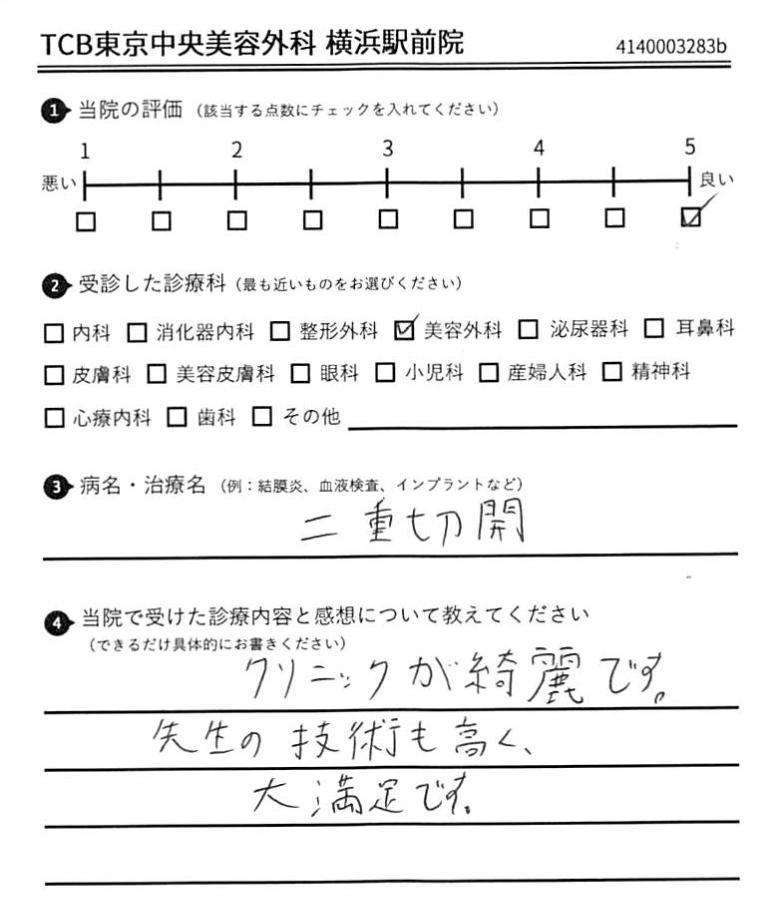 TCB東京中央美容外科 横浜駅前院 4140003283b
1 当院の評価 (該当する点数にチェックを入れてください)
1 2 3 4 5
悪い 良い
2 受診した診療科 (最も近いものをお選びください)
□ 内科 □ 消化器内科 □ 整形外科 ☑ 美容外科 □ 泌尿器科 □ 耳鼻科
□ 皮膚科 □ 美容皮膚科 □ 眼科 □ 小児科 □ 産婦人科 □ 精神科
□ 心療内科 □ 歯科 □ その他
3 病名・治療名 (例:結膜炎、血液検査、インプラントなど)
二重切開
4 当院で受けた診療内容と感想について教えてください
(できるだけ具体的にお書きください)
クリニックが綺麗です。
先生の技術も高く、
大満足です。